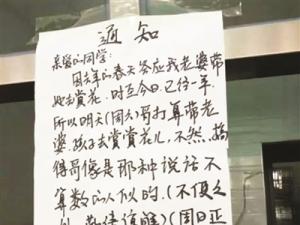 通知
亲爱的同学:
因去年的春天答应我老婆带
她去赏花,时至今日已待一年,
所以明天(周六)哥打算带老
婆、孩子去赏赏花儿,不然,搞
得哥像是那种说话不
算数的人似的.(不便之
处,敬请谅解)(周日正